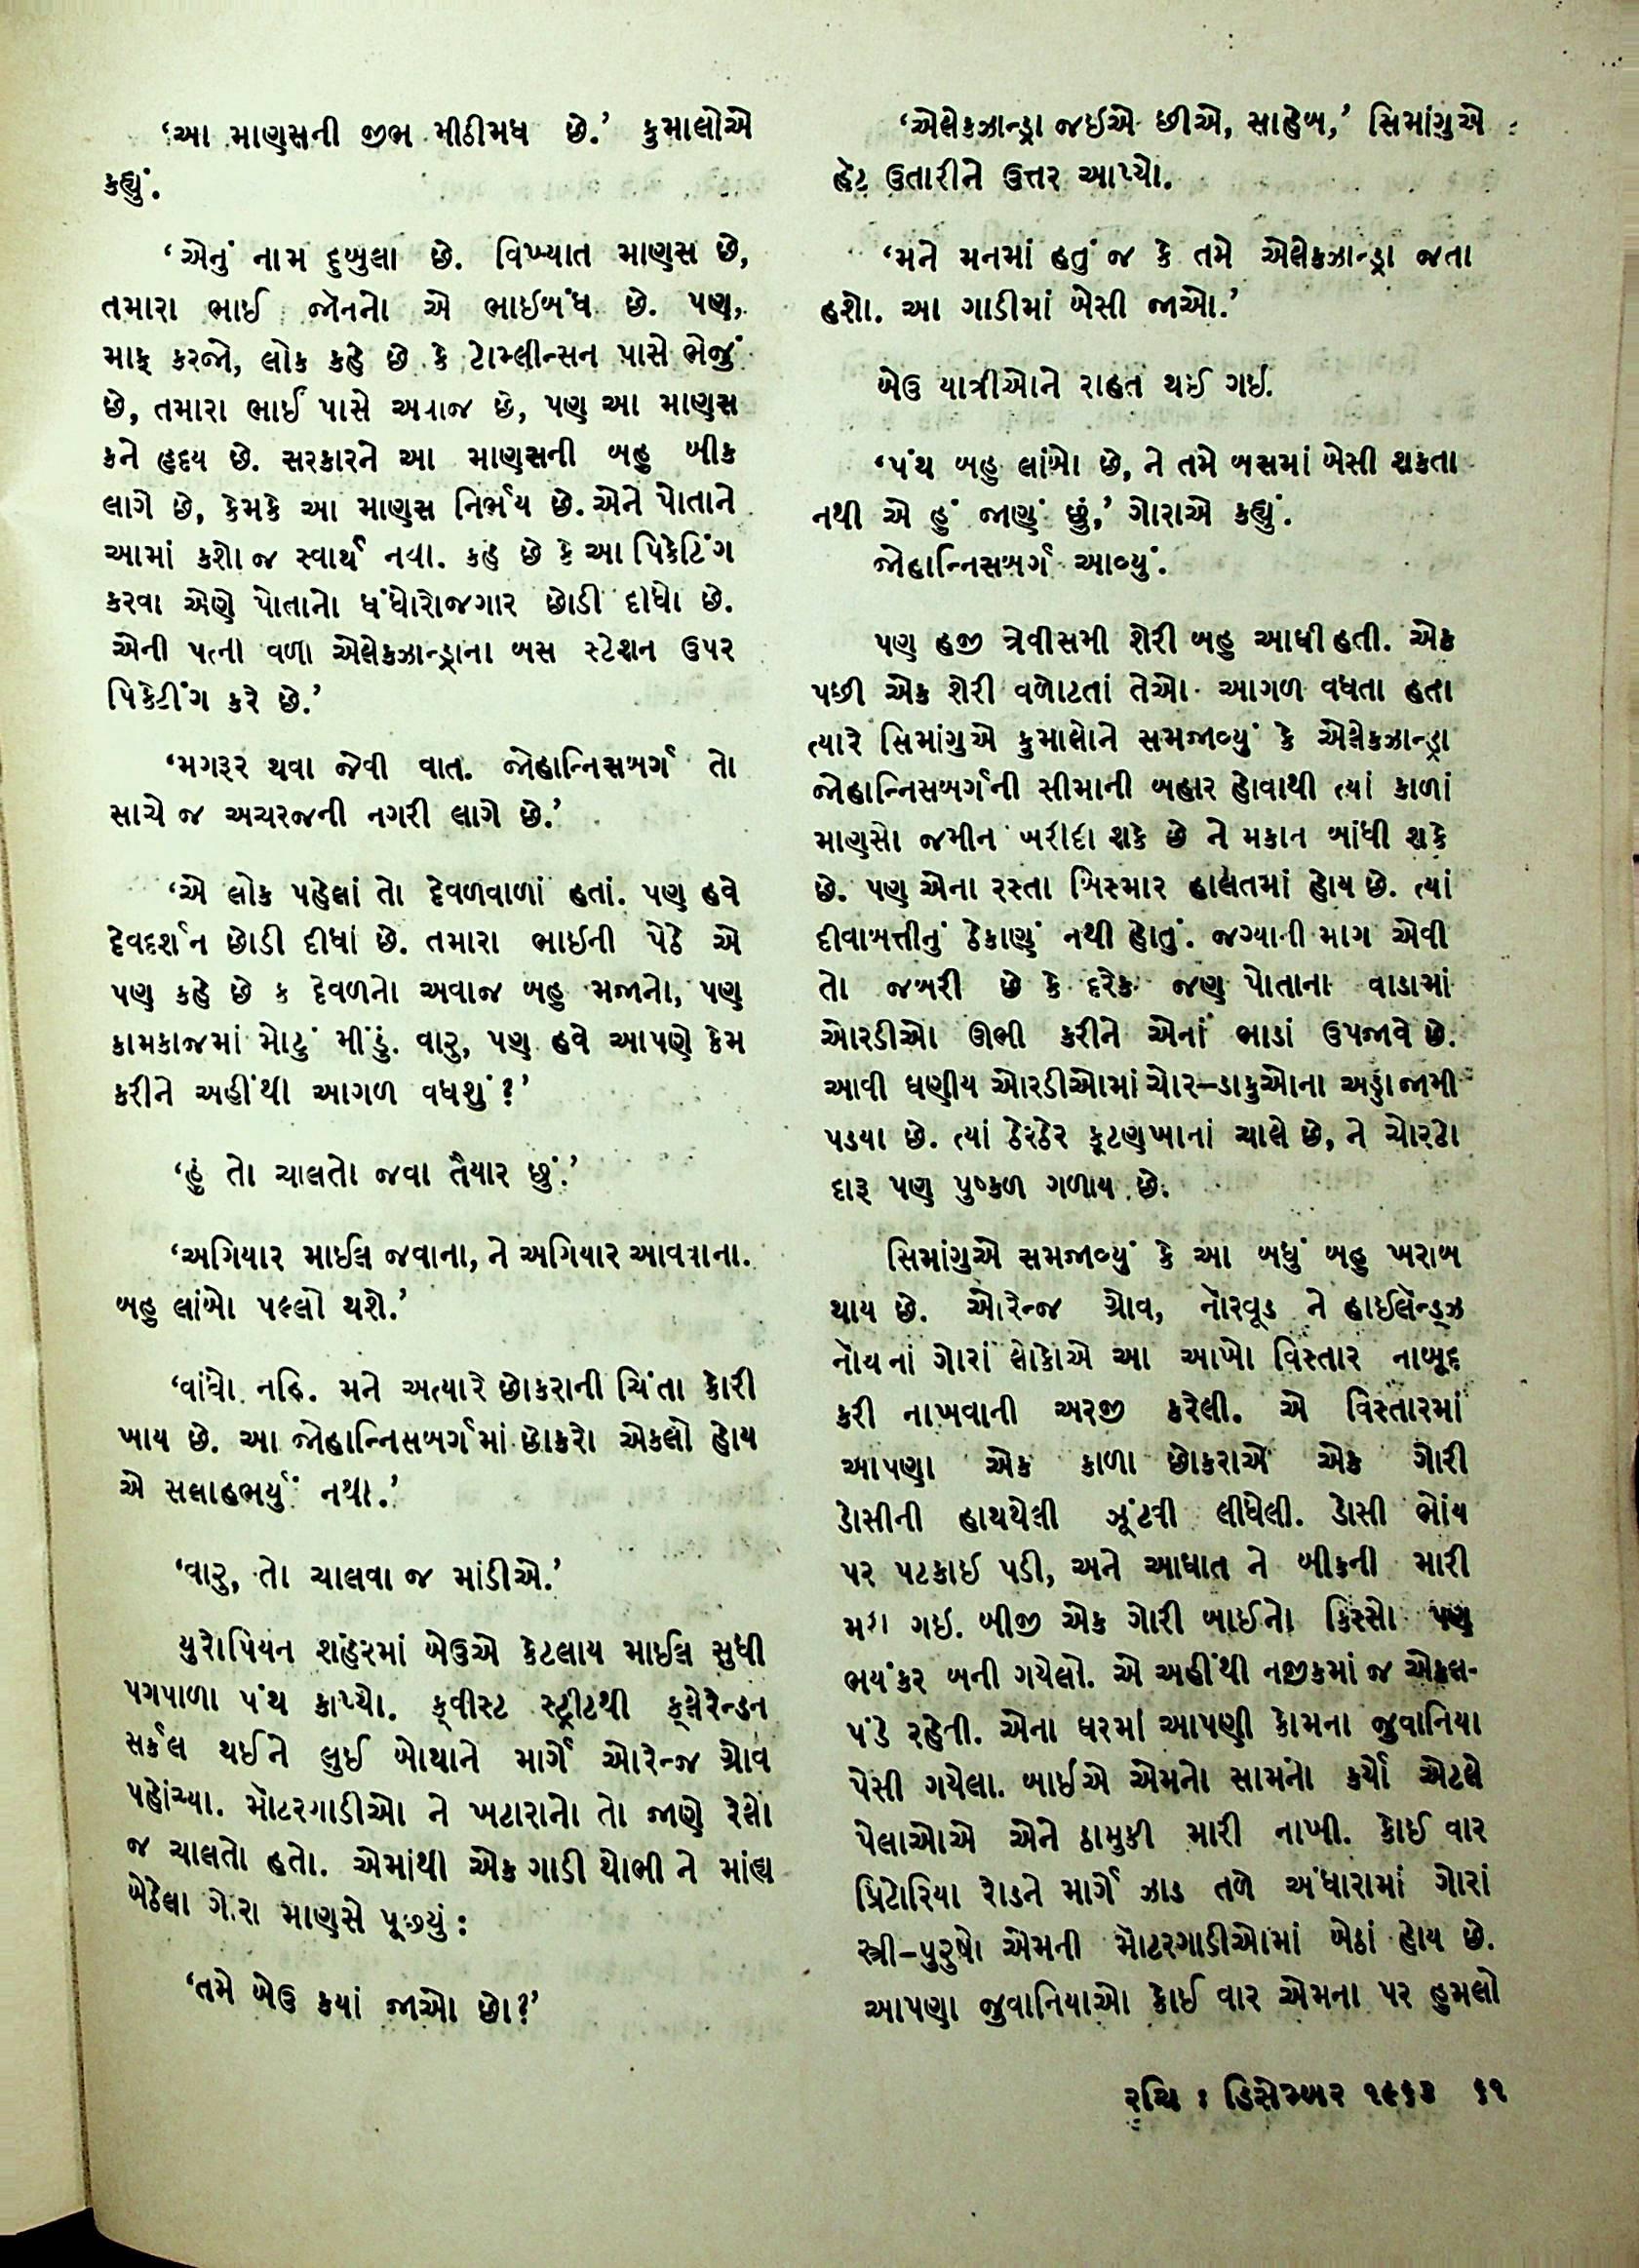 ‘આ માણસની જીભ મીઠીમધ છે.’ કુમાલોએ
કહ્યું.
‘એનું નામ દુબુલા છે. વિખ્યાત માણસ છે,
તમારા ભાઈ જોનનો એ ભાઈબંધ છે. પણ,
માફ કરજો, લોક કહે છે કે ટોમ્લીન્સન પાસે ભેજું
છે, તમારા ભાઈ પાસે અવાજ છે, પણ આ માણસ
કને હૃદય છે. સરકારને આ માણસની બહુ બીક
લાગે છે, કેમકે આ માણસ નિર્ભય છે. એને પોતાને
આમાં કશો જ સ્વાર્થ નથી. કહે છે કે આ પિકેટિંગ
કરવા એણે પોતાનો ધંધોરોજગાર છોડી દીધો છે.
એની પત્ની વળી એલેકઝાન્ડ્રાના બસ સ્ટેશન ઉપર
પિકેટીંગ કરે છે.’
‘મગરૂર થવા જેવી વાત. જોહાન્નિસબર્ગ તો
સાચે જ અચરજની નગરી લાગે છે.’
‘એ લોક પહેલાં તો દેવળવાળાં હતાં. પણ હવે
દેવદર્શન છોડી દીધાં છે. તમારા ભાઈની પેઠે એ
પણ કહે છે ક દેવળનો અવાજ બહુ મજાનો, પણ
કામકાજમાં મોટું મીંડું. વારુ, પણ હવે આપણે કેમ
કરીને અહીંથી આગળ વધશું?’
‘હું તો ચાલતો જવા તૈયાર છું.’
‘અગિયાર માઈલ જવાના, ને અગિયાર આવવાના.
બહુ લાંબો પલ્લો થશે.’
‘વાંધો નહિ. મને અત્યારે છોકરાની ચિંતા કોરી
ખાય છે. આ જોહાન્નિસબર્ગમાં છોકરો એકલો હોય
એ સલાહભર્યું નથી.’
‘વારુ, તો ચાલવા જ માંડીએ.’
યુરોપિયન શહેરમાં બેઉએ કેટલાય માઈલ સુધી
પગપાળા પંથ કાપ્યો. ક્વીસ્ટ સ્ટ્રીટથી ક્લેરેન્ડન
સર્કલ થઈને લુઈ બોથાને માર્ગે ઓરેન્જ ગ્રોવ
પહોંચ્યા. મૉટરગાડીઓ ને ખટારાનો તો જાણે રેલો
જ ચાલતો હતો. એમાંથી એક ગાડી થોભી ને માંહ્ય
બેઠેલા ગોરા માણસે પૂછ્યું :
‘તમે બેઉ કયાં જાઓ છો?’
‘એલેકઝાન્ડ્રા જઈએ છીએ, સાહેબ,’ સિમાંગુએ
હેટ ઉતારીને ઉત્તર આપ્યો.
‘મને મનમાં હતું જ કે તમે એલેકઝાન્ડ્રા જતા
હશો. આ ગાડીમાં બેસી જાઓ.’
બેઉ યાત્રીઓને રાહત થઈ ગઈ.
‘પંથ બહુ લાંબો છે, ને તમે બસમાં બેસી શકતા
નથી એ હું જાણું છું,’ ગોરાએ કહ્યું.
જોહાન્નિસબર્ગ આવ્યું.
પણ હજી ત્રેવીસમી શેરી બહુ આઘી હતી. એક
પછી એક શેરી વળોટતાં તેઓ આગળ વધતા હતા
ત્યારે સિમાંગુએ કુમાલોને સમજાવ્યું કે એલેકઝાન્ડ્રા
જોહાન્નિસબર્ગની સીમાની બહાર હોવાથી ત્યાં કાળાં
માણસો જમીન ખરીદી શકે છે ને મકાન બાંધી શકે
છે. પણ એના રસ્તા બિસ્માર હાલતમાં હોય છે. ત્યાં
દીવાબત્તીનું ઠેકાણું નથી હોતું. જગ્યાની માગ એવી
તો જબરી છે કે દરેક જણ પોતાના વાડામાં
ઓરડીઓ ઊભી કરીને એનાં ભાડાં ઉપજાવે છે.
આવી ઘણીય ઓરડીઓમાં ચોર–ડાકુઓના અડ્ડા જામી
પડયા છે. ત્યાં ઠેરઠેર કૂટણખાનાં ચાલે છે, ને ચોરટો
દારૂ પણ પુષ્કળ ગળાય છે.
સિમાંગુએ સમજાવ્યું કે આ બધું બહુ ખરાબ
થાય છે. ઓરેન્જ ગ્રોવ, નૉરવૂડ ને હાઈલૅન્ડ્ઝ
નૉથનાં ગોરાં લોકોએ આ આખો વિસ્તાર નાબૂદ
કરી નાખવાની અરજી કરેલી. એ વિસ્તારમાં
આપણા એક કાળા છોકરાએ એક ગોરી
ડોસીની હાથથેલી ઝૂંટવી લીધેલી. ડોસી ભોંય
પર પટકાઈ પડી, અને આઘાત ને બીકની મારી
મરી ગઈ. બીજી એક ગોરી બાઈનો કિસ્સો પણ
ભયંકર બની ગયેલો. એ અહીંથી નજીકમાં જ એકલ-
પંડે રહેતી. એના ઘરમાં આપણી કોમના જુવાનિયા
પેસી ગયેલા. બાઈએ એમનો સામનો કર્યો એટલે
પેલાઓએ એને ઠામુકી મારી નાખી. કોઈ વાર
પ્રિટોરિયા રોડને માર્ગે ઝાડ તળે અંધારામાં ગોરાં
સ્ત્રી–પુરુષો એમની મૉટરગાડીઓમાં બેઠાં હોય છે.
આપણા જુવાનિયાઓ કોઈ વાર એમના પર હુમલો
રુચિ : ડિસેમ્બર ૧૯૬૩ ૬૧